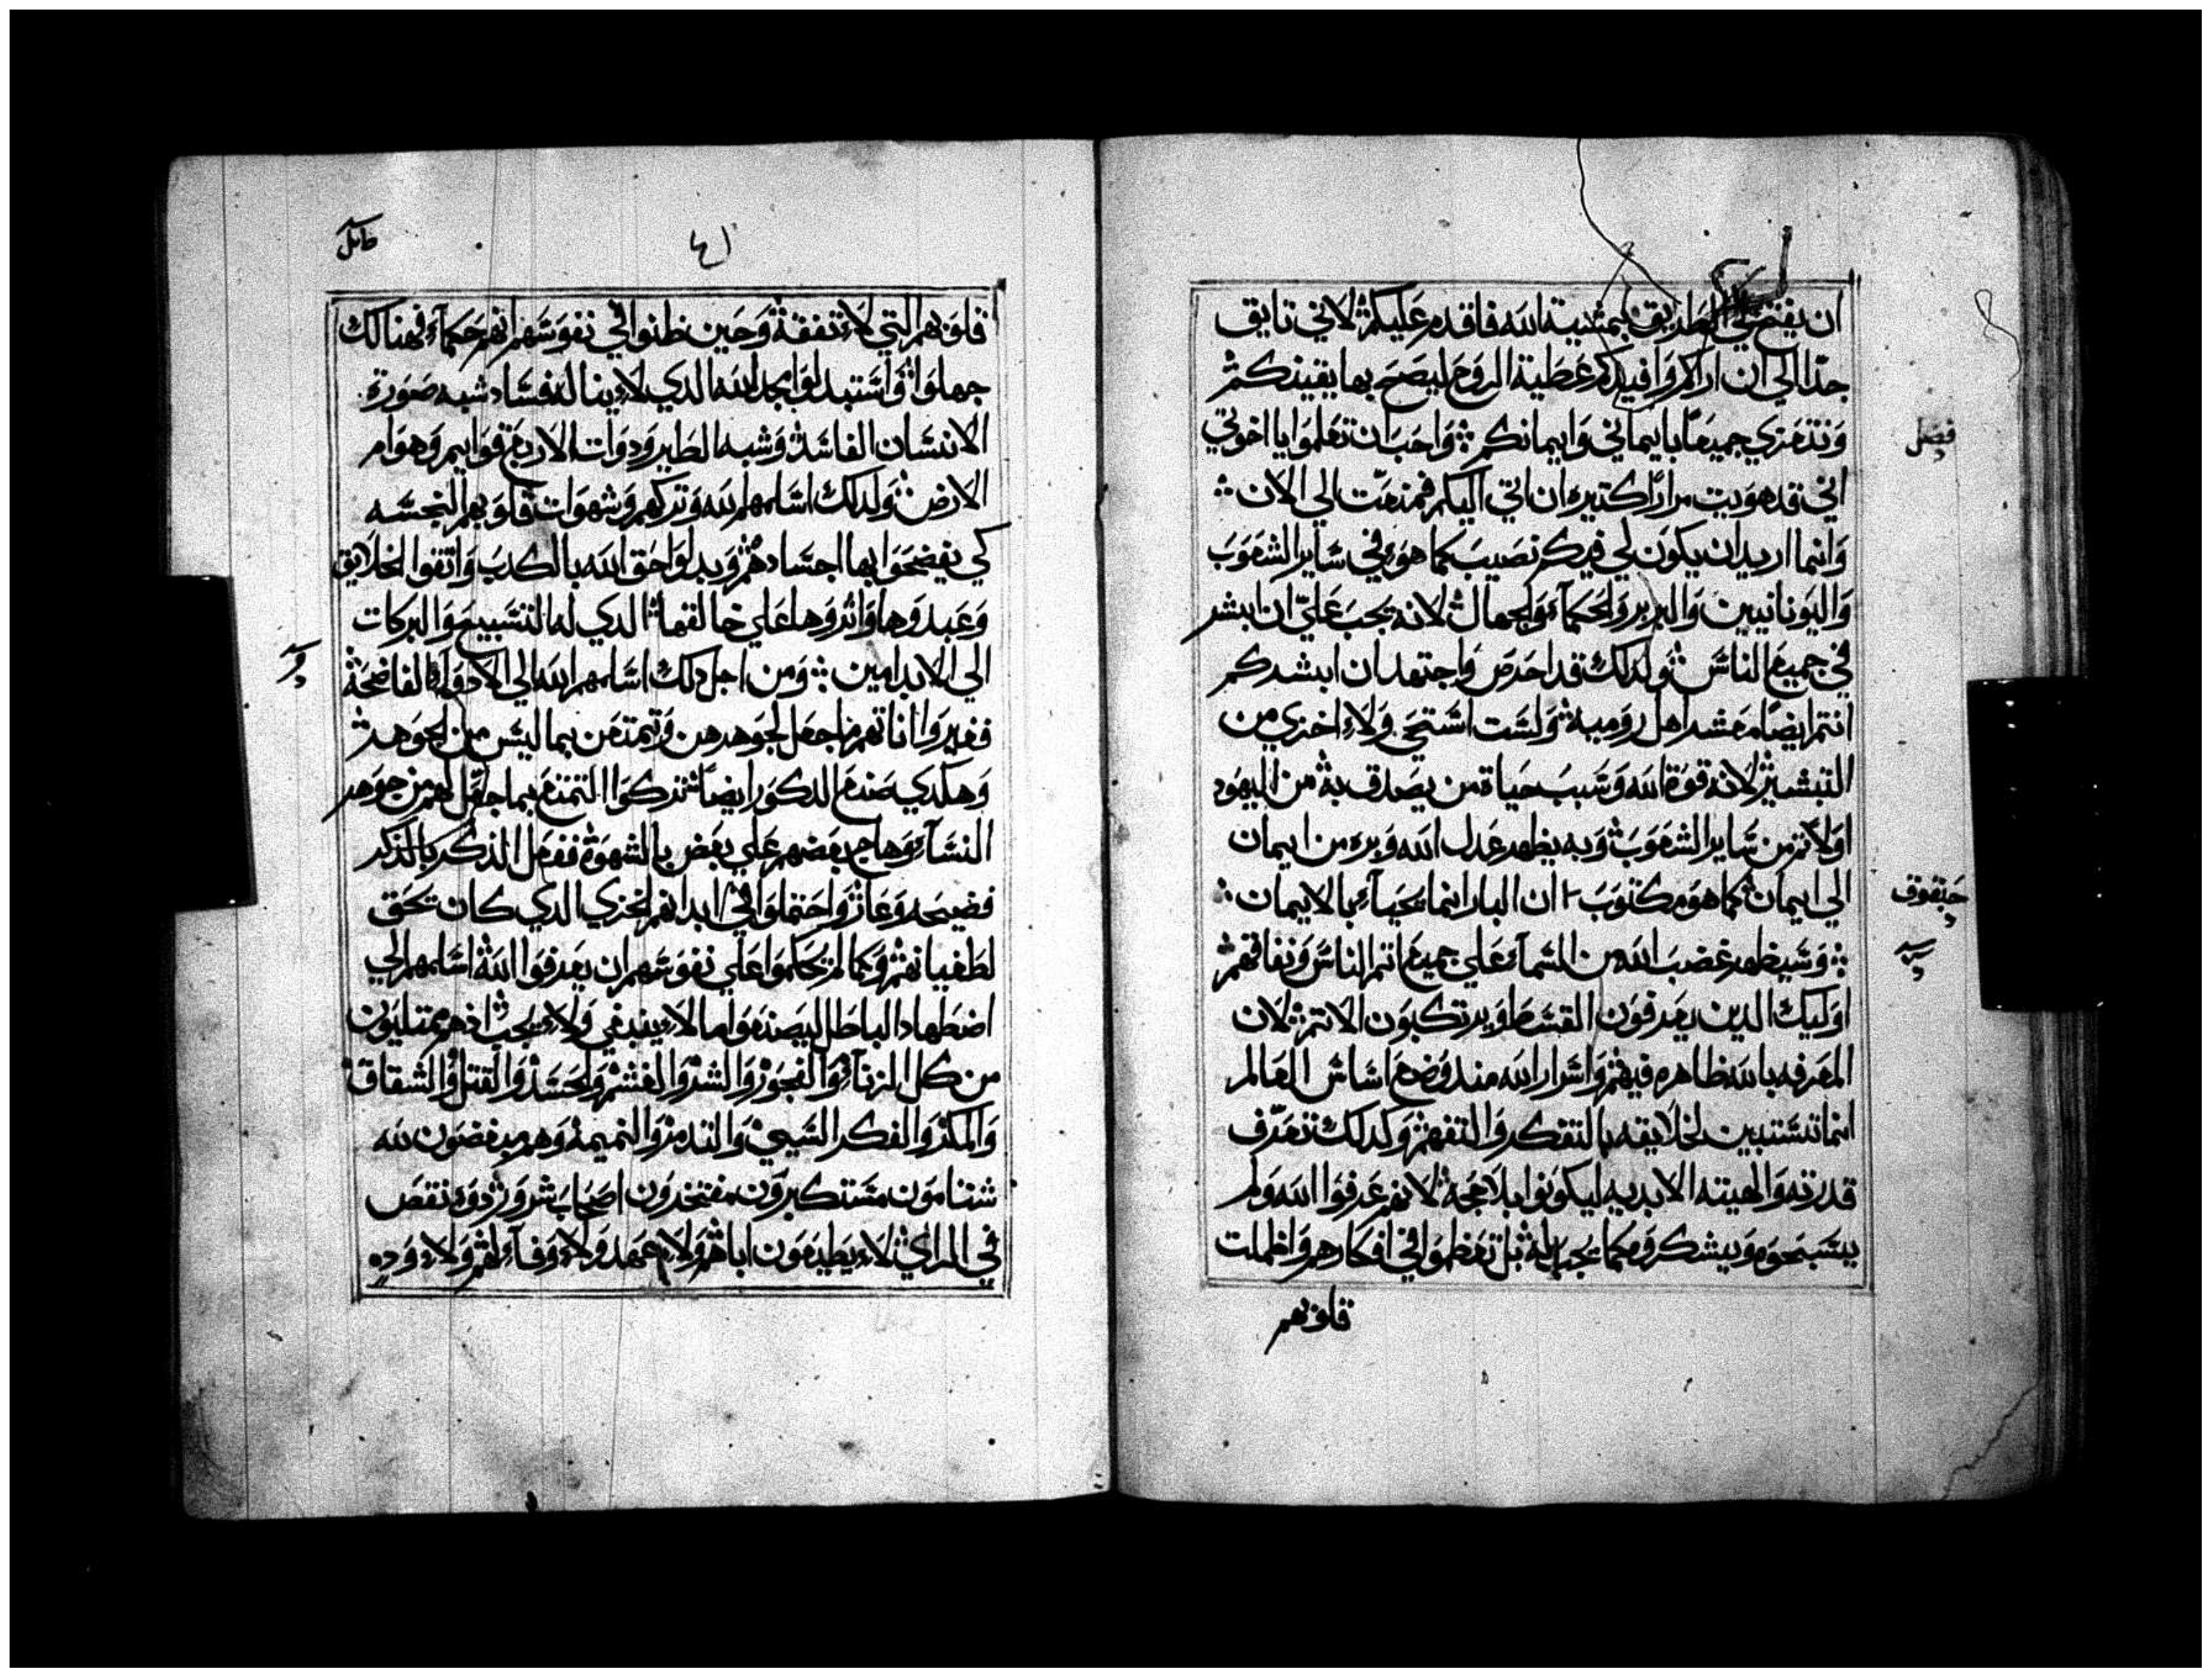 ان يفتح لي الطريق بمشية الله فاقدم عليكم لاني تايق
جدا الي ان اراكم وافيدكم عطية الروح ليصح بها يقينكم
ونتعزي جميعا بايماني وايمانكم واحب ان تعلموا يا اخوتي
فصل
اني قد هويت مرارا كتيره ان اتي اليكم فمنعت الي الان
وانما اريد ان يكون لي فيكم نصيب كما هو في ساير الشعوب
واليونانيين والبربر والحكمآء والجهال لانه يجب علي ان ابشر
في جميع الناس ولذلك قد احرص واجتهد ان ابشركم
انتم ايضا معشر اهل روميه ولست استحي ولا اخزي من
التبشير لانه قوة الله وسبب حياة من يصدق به من اليهود
اولا ثم من ساير الشعوب وبه يظهر عدل الله وبره من ايمان
الي ايمان كما هو مكتوب ان البار انما يحيآء بالايمان
حبقوق
وسيظهر غضب الله من السمآء علي جميع اتم الناس ونفاقهم
اوليك الدين يعرفون القسط ويرتكبون الاتم لان
المعرفه بالله ظاهره فيهم واسرار الله مند وضع اساس العالم
انما تستبين لخلايقه بالتفكر والتفهم وكدلك تعرف
قدرته والهيته الابديه ليكونوا بلا حجة لانهم عرفوا الله ولم
يسبحوه ويشكروه كما يجب له بل تعظموا في افكارهم واظلمت
قلوبهم
قلوبهم التي لا تفقة وحين ظنوا في نفوسهم انهم حكمآء فهنالك
جهلوا واستبدلوا بمجد الله الدي لا يناله فساد شبه صورة
الانسان الفاسد وشبه الطير ودوات الاربع قوايم وهوام
الارض ولدلك اسلمهم الله وتركهم وشهوات قلوبهم النجسه
كي يفضحوا بها اجسادهم وبدلوا حق الله بالكدب واتقوا الخلايق
وعبدوها واتروها علي خالقها الدي له التسبيح والبركات
الي الابد امين ومن اجل دلك اسلمهم الله الي الادوآء الفاضحة
فغيروا اناتهم ما جعل لجوهرهن وتمتعن بما ليس من الجوهر
وهكدي صنع الدكور ايضا تركوا التمتع بما جعل لهم من جوهر
النسآء وهاج بعضهم علي بعض بالشهوة ففعل الذكر بالذكر
فضيحه وعار واحتملوا في ابدانهم الخزي الدي كان تحق
لطغيانهم وكما لم يحكموا علي نفوسهم ان يعرفوا الله اسلمهم الي
اضطهاد الباطل ليصنعوا ما لا ينبغي ولا يجب اد هم ممتليون
من كل الزنآء والفجور والشر والغشم والحسد والقتل والشقاق
والمكر والفكر السيي والتدمر والنميمة وهم مبغضون لله
شتامون مستكبرون مفتخرون اصحاب شرور دوو نقص
في الراي لا يطيعون اباهم ولا عهد ولا وفآء لهم ولا وده